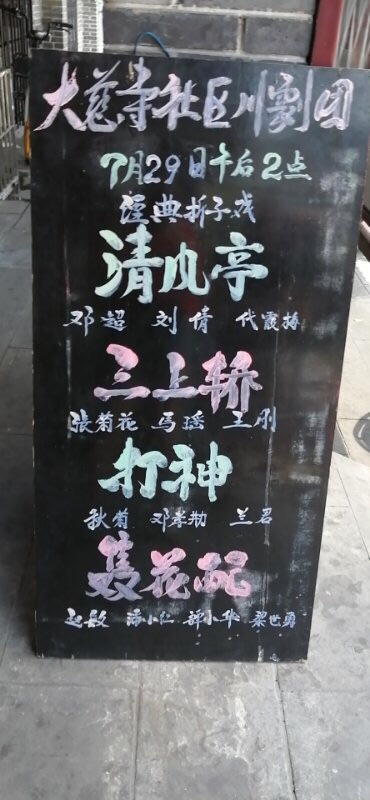 大慈寺社区川剧团
7月29日午后2点
经典折子戏
清风亭
邓超 刘倩 代霞梅
三上轿
張菊花 马瑶 王刚
打神
秋菊 邓孝勋 兰君
花
赵敏 小仁 谭小华 梁世勇